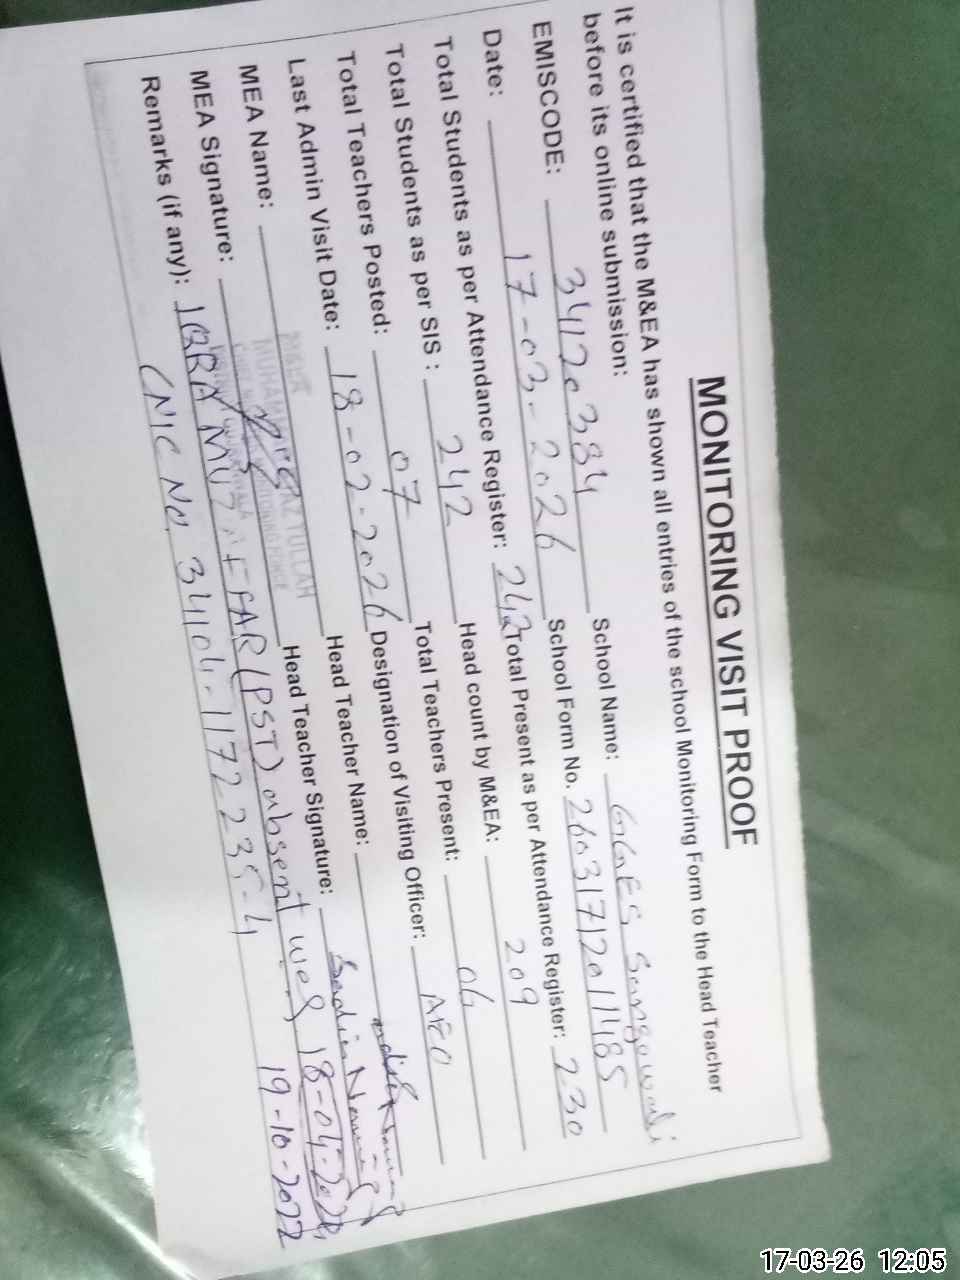 MONITORING VISIT PROOF
It is certified that the M&EA has shown all entries of the school Monitoring Form to the Head Teacher
before its online submission:
EMISCODE: 34120384 School Name: GGES
Date: 17-03-2026 School Form No. 260317120 1485
Total Students as per Attendance Register: 242 Total Present as per Attendance Register: 230
Total Students as per SIS : 242 Head count by M&EA: 209
Total Teachers Posted: 07 Total Teachers Present: 04
Last Admin Visit Date: 18-02-2026 Designation of Visiting Officer: AEO
MEA Name: Head Teacher Name:
MEA Signature: Head Teacher Signature:
Remarks (if any): IQRA MUZAFFAR (PST) absent w.e.f 18-04-
CNIC No. 34104-1172235-4 19-10-2022
17-03-26 12:05